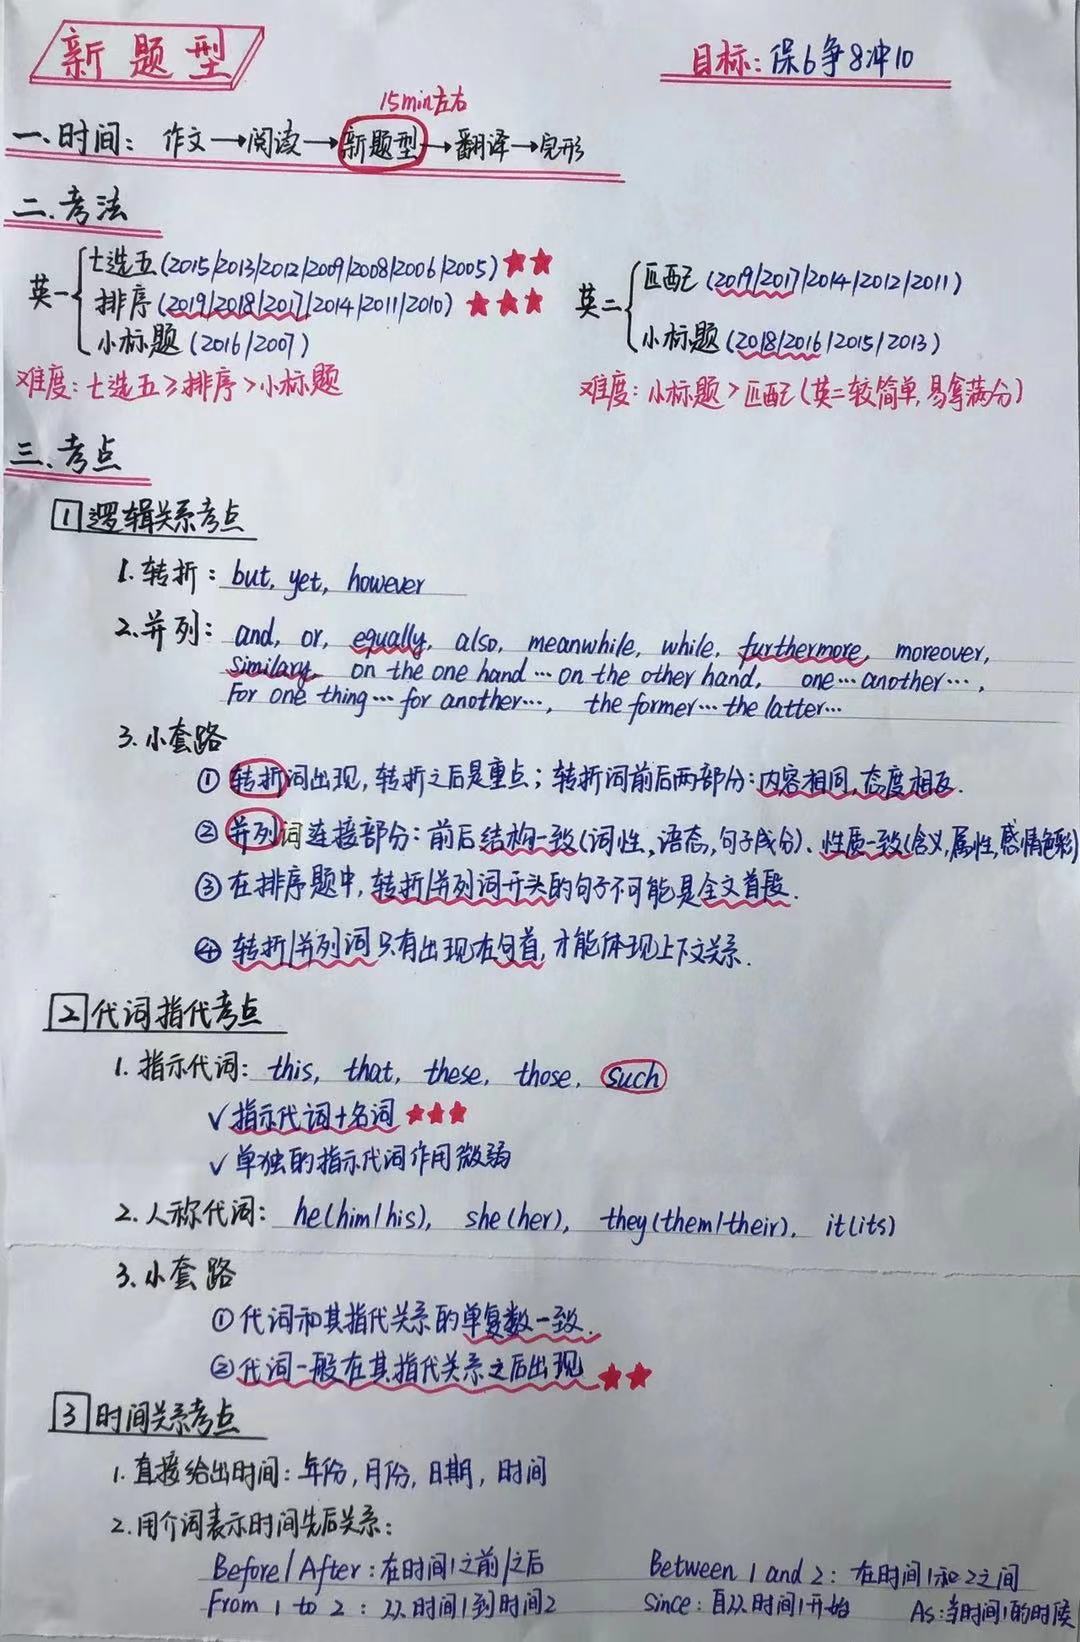 新题型
目标:保6争8冲10
15min左右
一.时间:作文→阅读→新题型→翻译→完形
二.考法
英一
七选五(2015/2013/2012/2009/2008/2006/2005)★★
排序(2019/2018/2017/2014/2011/2010)★★★
小标题(2016/2007)
英二
匹配(2019/2017/2014/2012/2011)
小标题(2018/2016/2015/2013)
难度:七选五≥排序>小标题
难度:小标题>匹配(英二较简单,易拿满分)
三.考点
1 逻辑关系考点
1.转折:but, yet, however
2.并列:and, or, equally, also, meanwhile, while, furthermore, moreover,
similary, on the one hand…on the other hand, one…another…,
For one thing…for another…, the former…the latter…
3.小套路
①转折词出现,转折之后是重点;转折词前后两部分:内容相同,态度相反.
②并列词连接部分:前后结构一致(词性,语态,句子成分)、性质一致(含义,属性,感情色彩)
③在排序题中,转折/并列词开头的句子不可能是全文首段.
④转折/并列词只有出现在句首,才能体现上下文关系.
2 代词指代考点
1.指示代词:this, that, these, those, such
√指示代词+名词★★★
√单独的指示代词作用微弱
2.人称代词:he(him/his), she(her), they(them/their), it(its)
3.小套路
①代词和其指代关系的单复数一致.
②代词一般在其指代关系之后出现★★
3 时间关系考点
1.直接给出时间:年份,月份,日期,时间
2.用介词表示时间先后关系:
Before/After:在时间1之前/之后
Between 1 and 2:在时间1和2之间
From 1 to 2:从时间1到时间2
Since:自从时间1开始
As:当时间1的时候